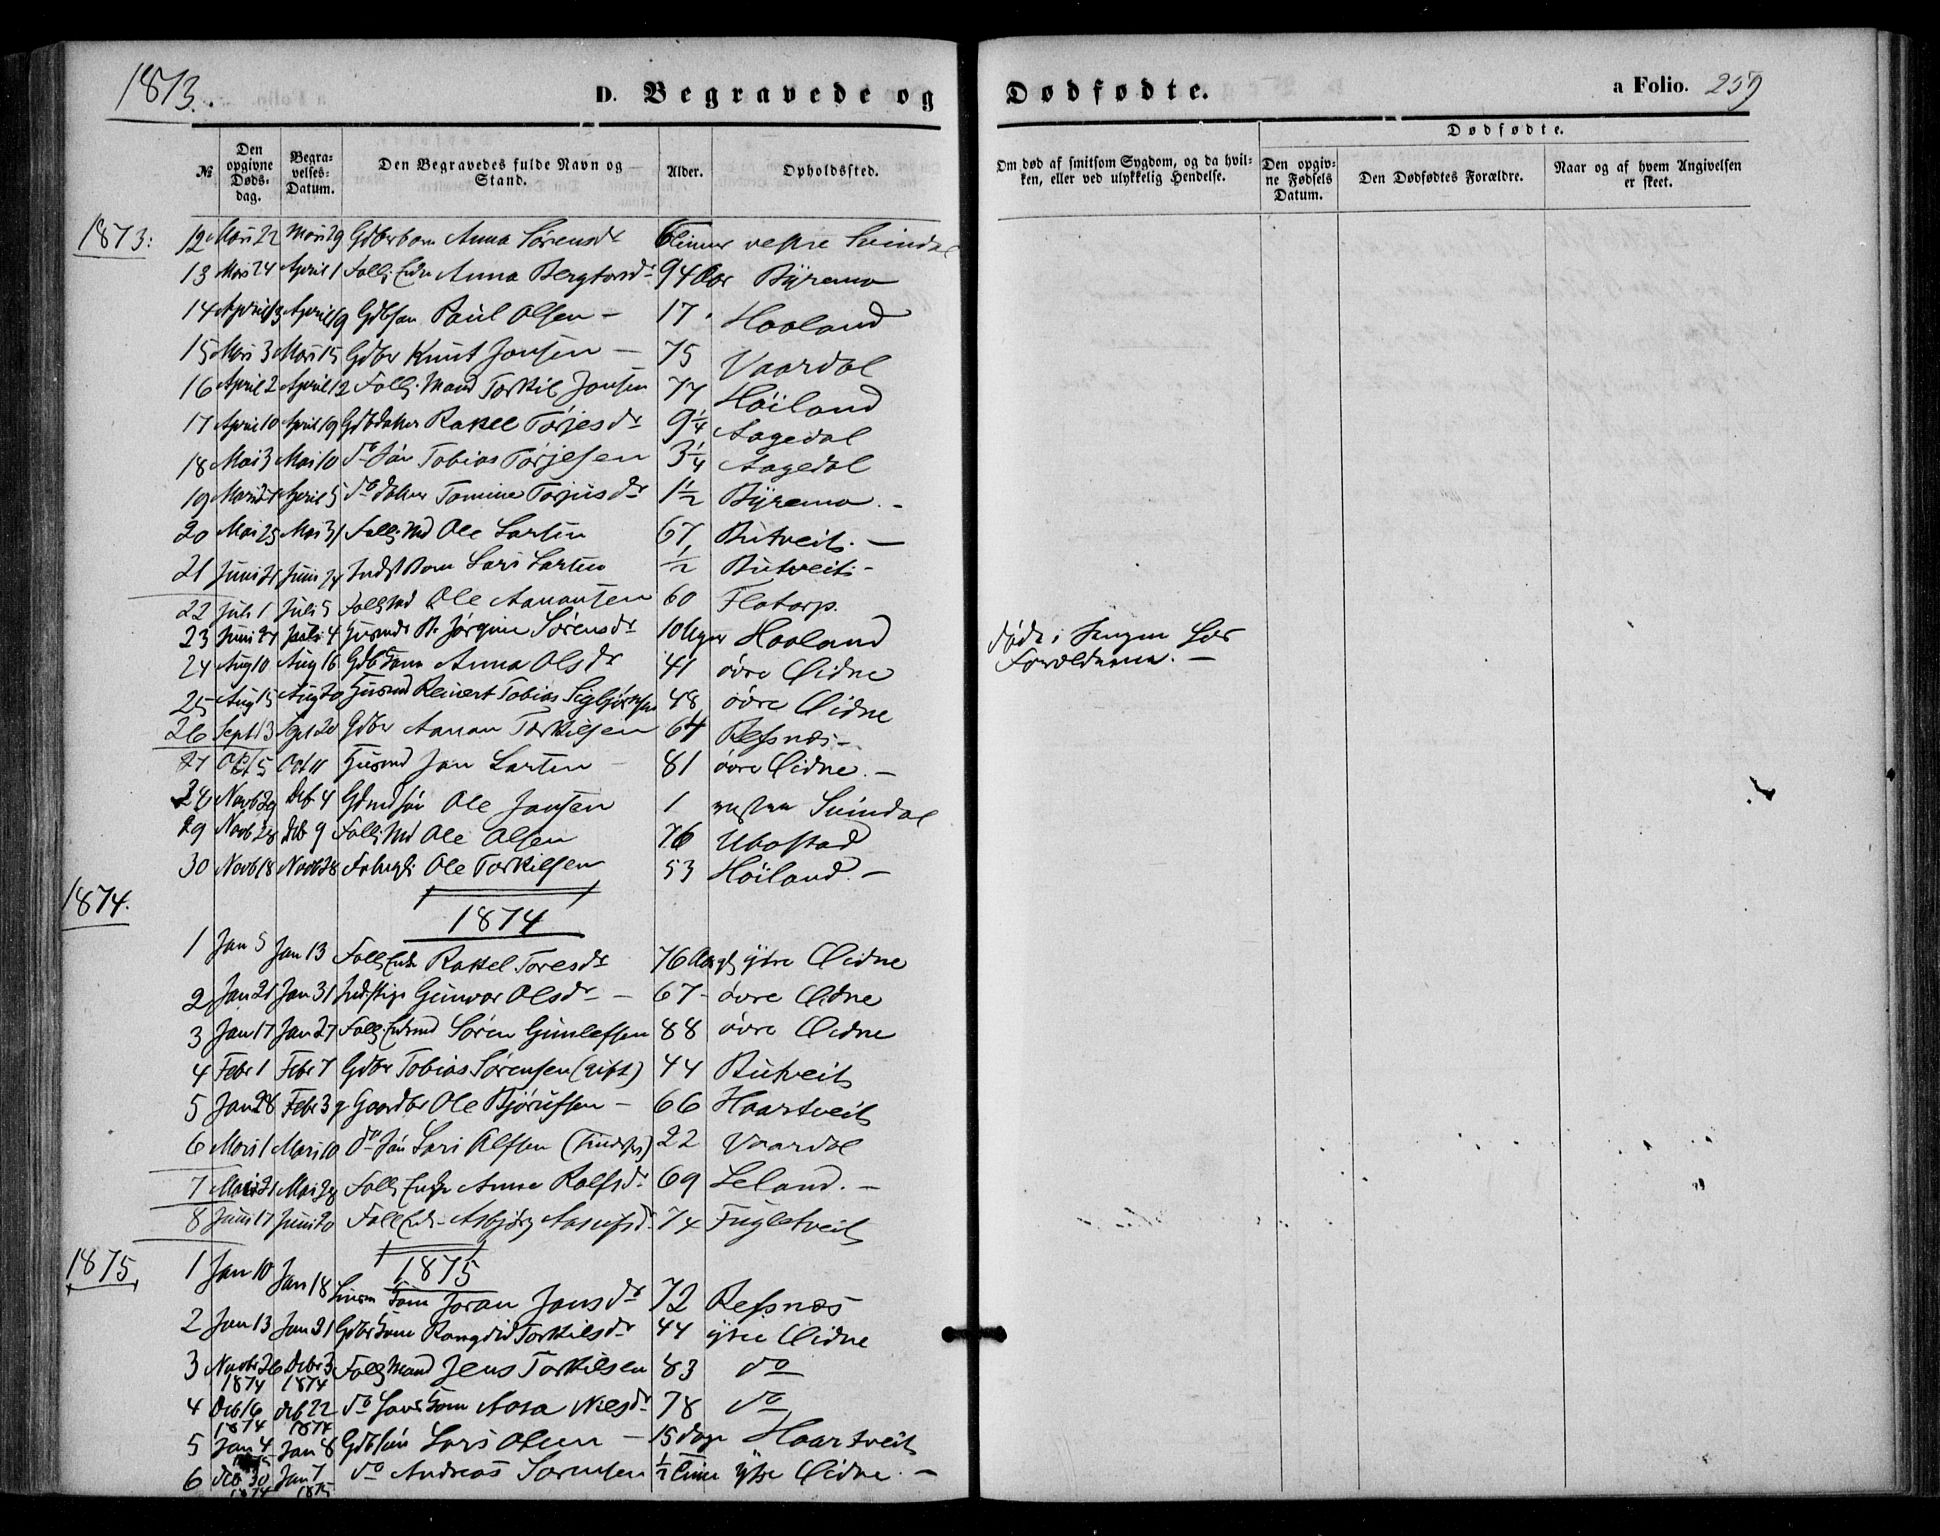 1873.
D. Begravede og Dødfødte. a Folio. 259
№ Den opgivne Døds-dag. Begra-velses-Datum. Den Begravedes fulde Navn og Stand. Alder. Opholdssted. Om død af smitsom Sygdom, og da hvil-ken, eller ved ulykkelig Hendelse. Dødfødte. Den opgiv-ne Fødsels Datum. Den Dødfødtes Forældre. Naar og af hvem Angivelsen er skeet.
1873:
12 Mars 22 Mars 29 Gdbrbarn Anna Sørensdr 6 Timer vestre Svindal
13 Mars 24 April 1 Anna Bergtorsdr 94 Aar Byremo
14 April 13 April 19 Gdbsøn Paul Olsen – 17 Haaland
15 Mars 3 Mars 15 Gdbr Knut Jansen – 75 Vaardal
16 April 2 April 12 Mand Torkil Jansen 77 Høiland
17 April 10 April 19 Rakel Tørjesdr 9¼ Aagedal
18 Mai 3 Mai 10 do Søn Tobias Tørjesen 3¼ Aagedal
19 April 5 do Tomine Torjusdr 1½ Byremo. –
20 Mai 25 Mai 31 Ole Larsen 67 Butveit. –
21 Juni 21 Juni 24 Lars Larsen ½ Butveit –
22 Juli 1 Juli 5 Ole Aanansen 60 Flatarp.
23 Juni 27 Juli 4 Jørgine Sørensdr 10 Uger Haaland døde i Sengen hos Forældrene. –
24 Aug 10 Aug 16 Anna Olsdr 41 øvre Øidne
25 Aug 15 Aug 20 Husmd Reinert Tobias Sigbjørnsen 48 øvre Øidne
26 Sept 13 Sept 20 Gdbr Aanan Torkilsen 64 Refsnæs –
27 Oct 5 Oct 11 Husmd Jan Larsen – 81 øvre Øidne. –
28 Novb 29 Deb 4 Ole Jansen 1 vestre Svindal
29 Novb 28 Deb 9 Ole Olsen 76 Ubostad
30 Novb 18 Novb 28 Ole Torkilsen 53 Høiland. –
1874.
1874
1 Jan 5 Jan 13 Rakel Toresdr 76 ytre Øidne
2 Jan 21 Jan 31 Gunvor Olsdr – 67 – øvre Øidne
3 Jan 17 Jan 27 Søren Gunlefsen 88 øvre Øidne
4 Febr 1 Febr 7 Gdbr Tobias Sørensen (gift) 44 Butveit
5 Jan 28 Febr 39 Gaardbr Ole Bjørufsen – 66 Haartveit
6 Mars 1 Mars 10 do Søn Lars Alfsen 22 Vaardal
7 Mai 21 Mai 28 Anne Rolfsdr 69 Leland. –
8 Juni 17 Juni 20 Asbjørg 74 Fugletveit
1875.
1875
1 Jan 10 Jan 18 Joran Jansdr 72 Refsnæs
2 Jan 13 Jan 21 Rangdid Torkilsdr 44 ytre Øidne
3 Novbr 26 1874 Debr 3 1874 Mand Jens Torkilsen 83 do
4 Deb 16 1874 Deb 22 1874 do Aasa Nilsdr 78 do
5 Jan 4 Jan 8 Gdbsøn Lars Olsen – 15 dage Haartveit
6 Deb 30 1874 Jan 7 1875 do Andreas Sørensen ½ Time ytre Øidne. –